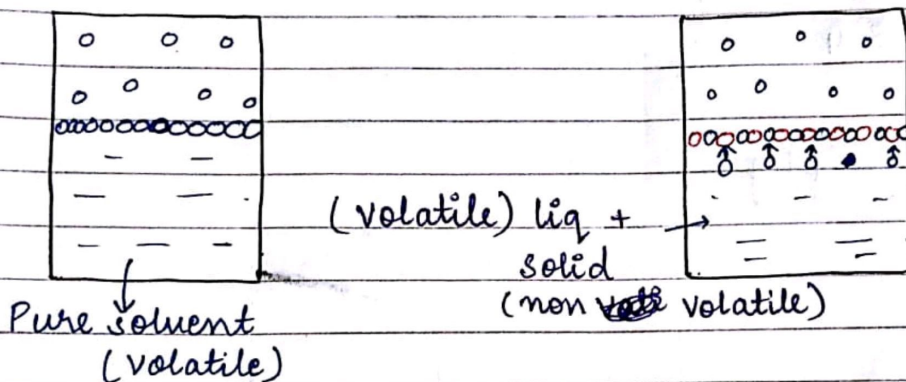 (volatile) liq +
solid
(non volatile)
Pure solvent
(volatile)